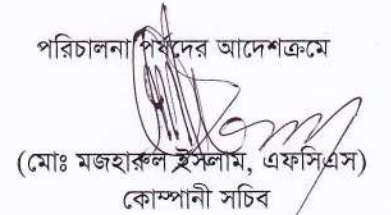 পরিচালনা পর্ষদের আদেশক্রমে
(মোঃ মজহারুল ইসলাম, এফসিএস)
কোম্পানী সচিব